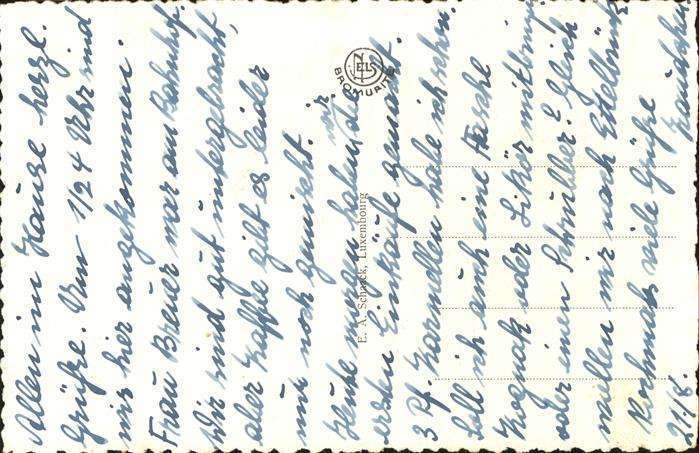 Allen im Hause herzl.
Grüße. Um 1/2 4 Uhr sind
wir hier angekommen.
Frau Breuer war am Bahnhof.
Wir sind gut untergebracht,
aber Kaffe gibt es leider
nur noch gemischt.
Heute morgen haben wir die
ersten Einkäufe gemacht.
3 Pf. Karmellen habe ich schon.
Soll ich auch eine Flasche
Kognak oder Likör mitbringen
oder einen Schmuller? Gleich
wollen wir nach Ettelbrück
Nochmals viele Grüße
NELS
BROMURITE
E. A. Schaack, Luxembourg